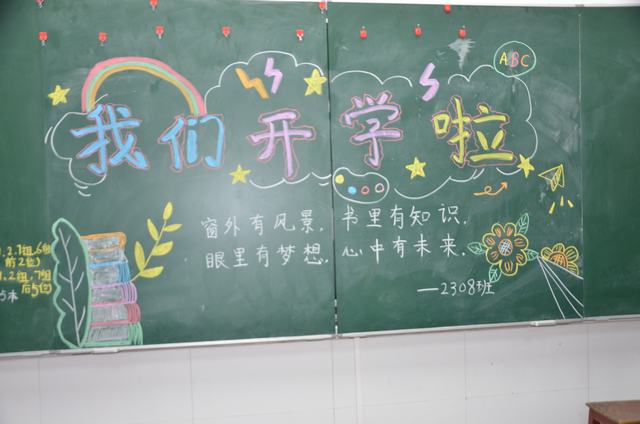 我们开学啦
ABC
窗外有风景,书里有知识.
眼里有梦想,心中有未来.
——2308班
.2.7组6组
前2位
1.2组,7组
后5位
本